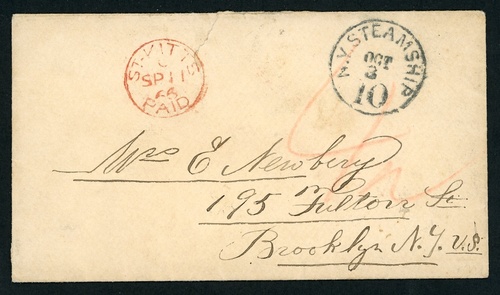 ST. KITTS
C
SP 11
66
PAID
N.Y. STEAMSHIP
OCT
3
10
Mrs E Newbery
195 Fulton St.
Brooklyn N.Y. U.S.